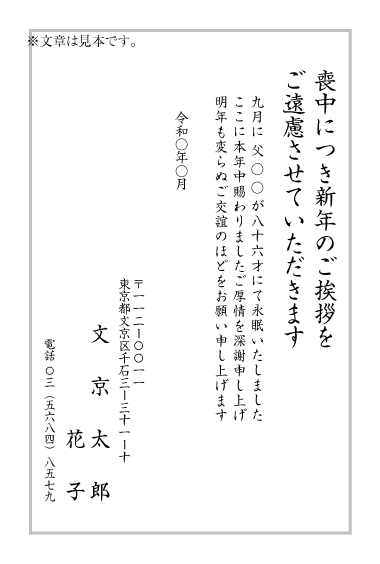 ※文章は見本です。
喪中につき新年のご挨拶を
ご遠慮させていただきます
九月に 父〇〇が八十六才にて永眠いたしました
ここに本年中賜わりましたご厚情を深謝申し上げ
明年も変らぬご交誼のほどをお願い申し上げます
令和〇年〇月
〒一一二ー〇〇一一
東京都文京区千石三ー三十一ー十
文京太郎
花子
電話 〇三(五六八四)八五七九